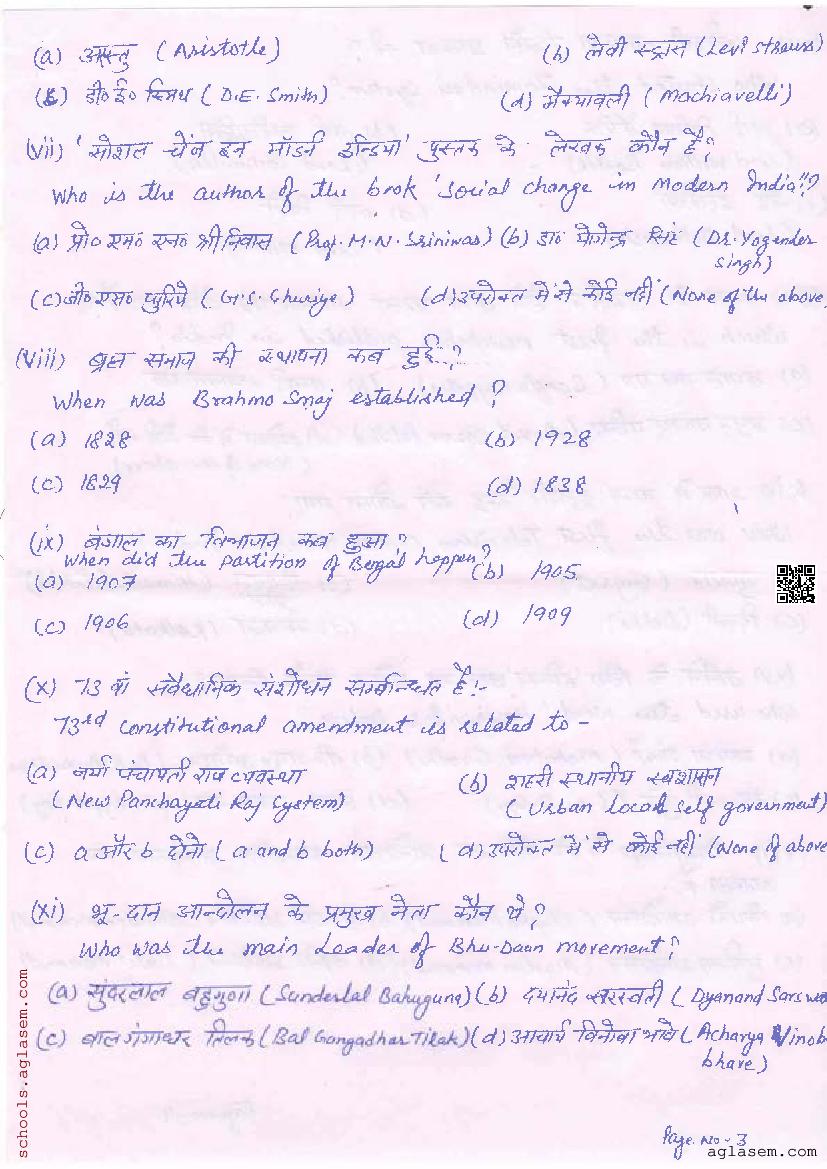 (a) अरस्तु (Aristotle) (b) लेवी स्ट्रास (Levi strauss)
(c) डी० ई० स्मिथ (D.E. Smith) (d) मैक्यावली (Machiavelli)
(vii) 'सोशल चेंज इन मॉडर्न इन्डिया' पुस्तक के लेखक कौन हैं?
Who is the author of the book 'Social change in Modern India'?
(a) प्रो० एम० एन० श्रीनिवास (Prof. M.N. Sriniwas) (b) डा० योगेन्द्र सिंह (Dr. Yogender
singh)
(c) जी० एस० घुरिये (G.S. Ghuriye) (d) उपरोक्त में से कोई नहीं (None of the above)
(viii) ब्रह्म समाज की स्थापना कब हुई?
When was Brahmo Smaj established?
(a) 1828 (b) 1928
(c) 1829 (d) 1838
(ix) बंगाल का विभाजन कब हुआ?
When did the partition of Bengal happen?
(a) 1907 (b) 1905
(c) 1906 (d) 1909
(x) 73 वां संवैधानिक संशोधन सम्बन्धित है:-
73rd constitutional amendment is related to -
(a) नयी पंचायती राज व्यवस्था (b) शहरी स्थानीय स्वशासन
(New Panchayati Raj System) (Urban local self government)
(c) a और b दोनो (a and b both) (d) उपरोक्त में से कोई नहीं (None of above
(xi) भू-दान आन्दोलन के प्रमुख नेता कौन थे?
Who was the main Leader of Bhu-Daan movement?
(a) सुंदरलाल बहुगुणा (Sunderlal Bahuguna) (b) दयानंद सरस्वती (Dyanand Sarswa
(c) बाल गंगाधर तिलक (Bal Gangadhar Tilak) (d) आचार्य विनोबा भावे (Acharya Vinob
bhave)
Page. No - 3
schools.aglasem.com
aglasem.com